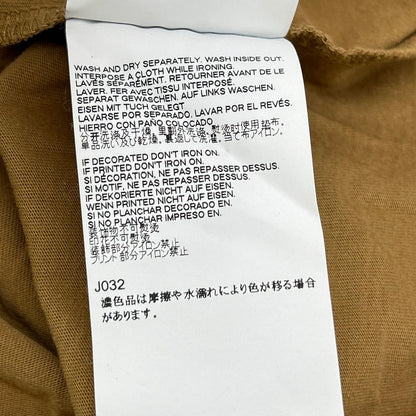 WASH AND DRY SEPARATELY. WASH INSIDE OUT.
INTERPOSE A CLOTH WHILE IRONING.
LAVER SÉPARÉMENT. RETOURNER AVANT DE LE
LAVER. FER AVEC TISSU INTERPOSÉ.
SEPARAT GEWASCHEN. AUF LINKS WASCHEN.
EISEN MIT TUCH GELEGT.
LAVARSE POR SEPARADO. LAVAR POR EL REVÉS.
HIERRO CON PAÑO COLOCADO.
分开洗涤及干燥。里翻外洗涤。熨烫时使用垫布。
単品洗い及び乾燥。裏返して洗濯。当て布アイロン。
IF DECORATED DON'T IRON ON.
IF PRINTED DON'T IRON ON.
SI DÉCORATION, NE PAS REPASSER DESSUS.
SI MOTIF, NE PAS REPASSER DESSUS.
IF DEKORIERTE NICHT AUF EISEN.
WENN PRINTED NICHT AUF EISEN.
SI NO PLANCHAR DECORADO EN.
SI NO PLANCHAR IMPRESO EN.
装饰物不可熨烫
印花不可熨烫
装飾部分アイロン禁止
プリント部分アイロン禁止
J032
濃色品は摩擦や水濡れにより色が移る場合
があります。